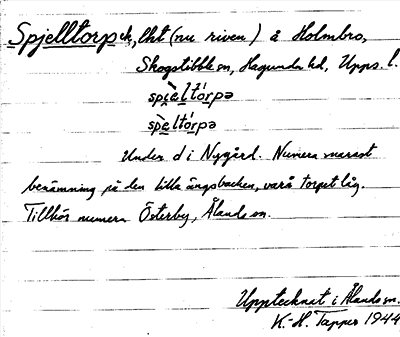 Spjelltorpet, lht (nu riven) å Holmbro,
Skogstibble sn, Hagunda hd, Upps. l.
spi̯èltórpə
spèltórpə
Under d i Nygård. Numera närmast
benämning på den lilla ängsbacken, varå torpet låg.
Tillhör numera Österby, Ålands sn.
Upptecknat i Ålands sn.
K.-H. Tapper 1944